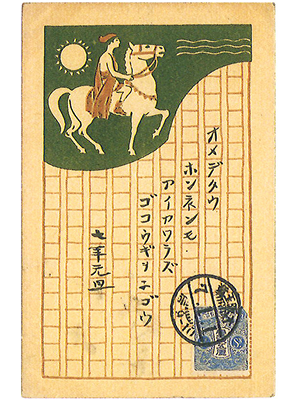 オメデタウ
ホンネンモ
アイカワラズ
ゴコウギヲネゴウ
七年元旦